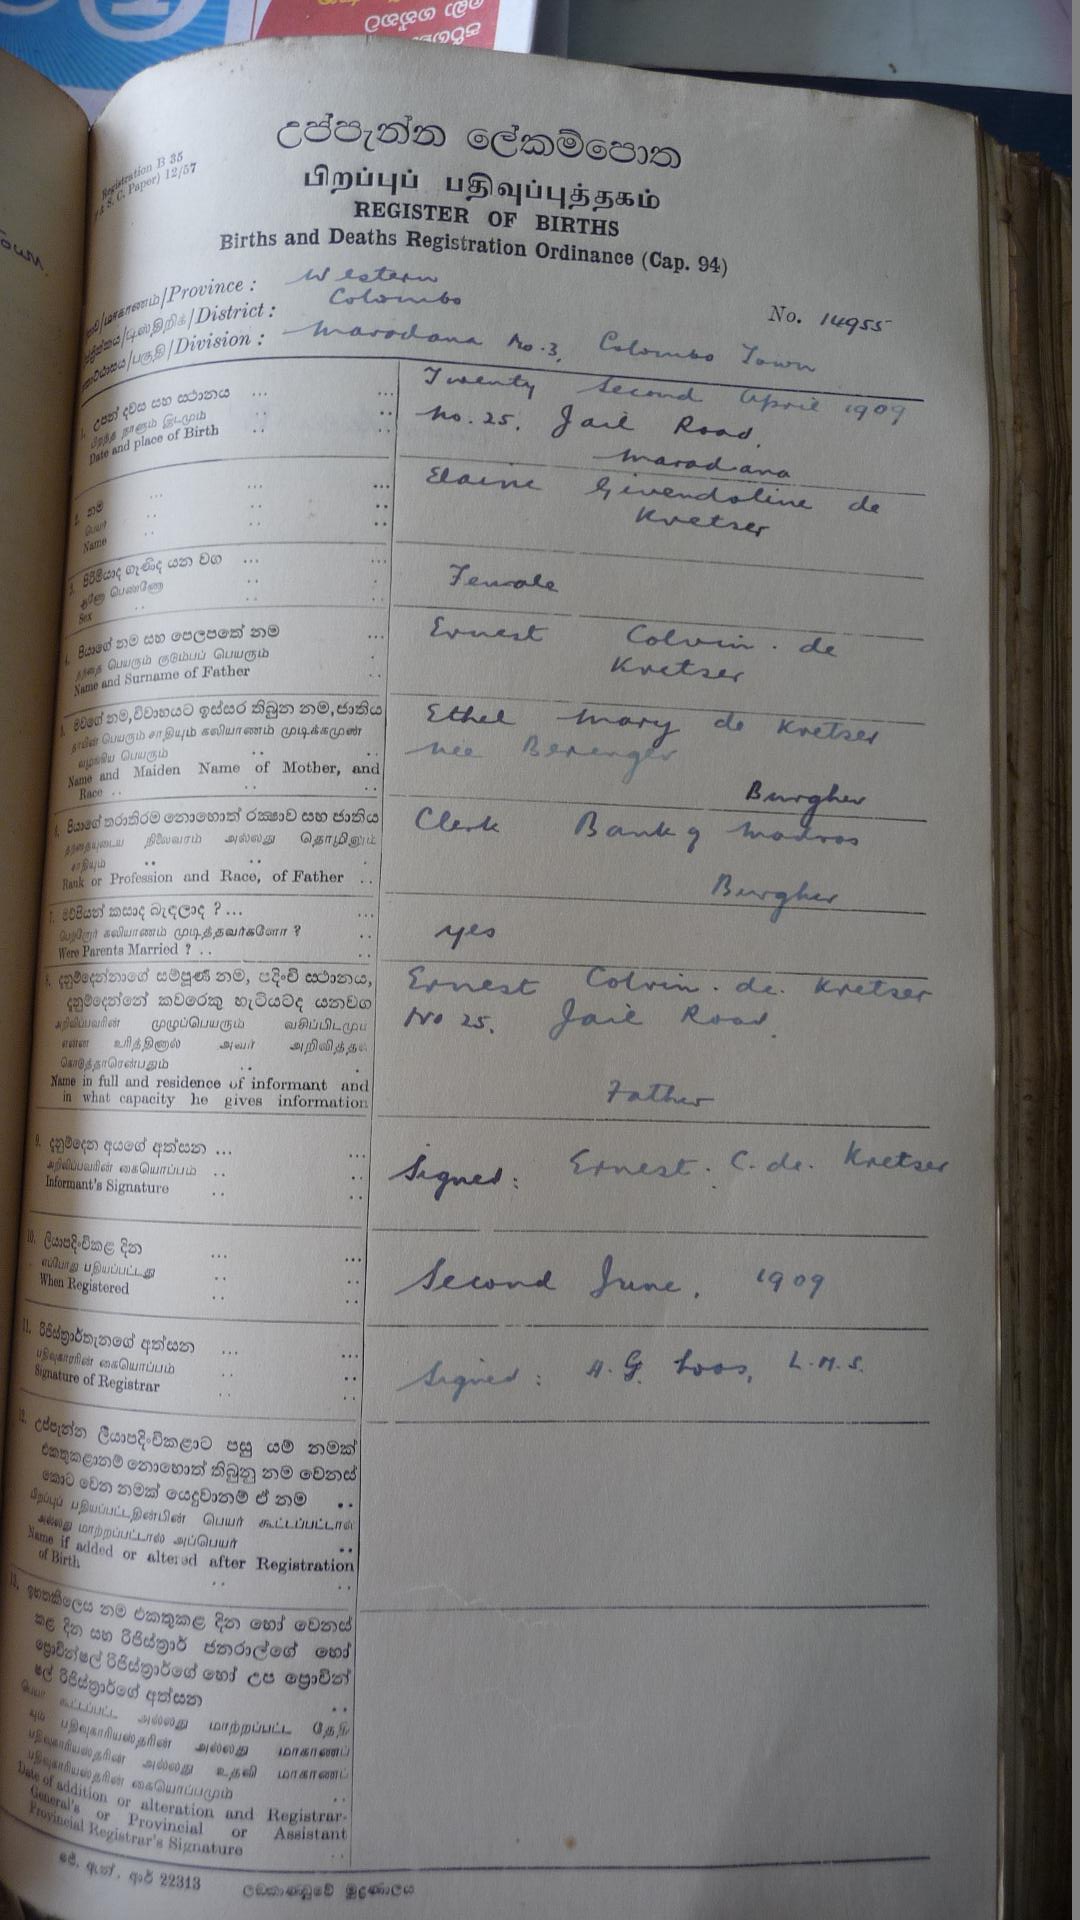 උප්පැන්න ලේකම්පොත
பிறப்புப் பதிவுப்புத்தகம்
REGISTER OF BIRTHS
Births and Deaths Registration Ordinance (Cap. 94)
Registration B 35
S. C. Paper) 12/57
/மாகாணம்/Province : Western
/டிஸ்திறிக்/District : Colombo
No. 14955
/பகுதி/Division : Maradana No. 3, Colombo Town
1. උපන් දවස සහ ස්ථානය ... ...
பிறந்த நாளும் இடமும் .. ..
Date and place of Birth .. ..
Twenty Second April 1909
No. 25. Jail Road.
Maradana
2. නම ... ... ...
பெயர் .. .. ..
Name .. .. ..
Elaine Gwendoline de
Kretser
3. පිරිමියාද ගෑණිද යන වග ... ...
ஆணோ பெண்ணோ .. .
Sex .. .. .
Female
4. පියාගේ නම සහ පෙලපතේ නම ...
தந்தை பெயரும் குடும்பப் பெயரும் .
Name and Surname of Father ..
Ernest Colvin . de
Kretser
5. මවගේ නම, විවාහයට ඉස්සර තිබුන නම, ජාතිය
தாயின் பெயரும் சாதியும் கலியாணம் முடிக்கமுன்
வழங்கிய பெயரும் .. ..
Name and Maiden Name of Mother, and
Race .. .. ..
Ethel Mary de Kretser
nee Berenger
Burgher
6. පියාගේ තරාතිරම නොහොත් රක්ෂාව සහ ජාතිය
தந்தையுடைய நிலைவரம் அல்லது தொழிலும்
சாதியும் .. .. .
Rank or Profession and Race, of Father ..
Clerk Bank of Madras
Burgher
7. මව්පියන් කසාද බැඳලාද ? ... ...
பெற்றோர் கலியாணம் முடித்தவர்களோ ? ..
Were Parents Married ? .. ..
yes
8. දනුම්දෙන්නාගේ සම්පූර්ණ නම, පදිංචි ස්ථානය,
දනුම්දෙන්නේ කවරෙකු හැටියටද යනවග
அறிவிப்பவரின் முழுப்பெயரும் வசிப்பிடமும்
என்ன உரித்தினால் அவர் அறிவித்தல்
கொடுத்தாரென்பதும் .. .
Name in full and residence of informant and
in what capacity he gives information
Ernest Colvin . de . Kretser
No 25. Jail Road.
Father
9. දනුම්දෙන අයගේ අත්සන ... ...
அறிவிப்பவரின் கையொப்பம் .. ..
Informant's Signature .. ..
Signed : Ernest . C. de . Kretser
10. ලියාපදිංචිකළ දින ... ...
எப்போது பதியப்பட்டது .. ..
When Registered .. ..
Second June, 1909
11. රෙජිස්ත්‍රාර්තැනගේ අත්සන ... ...
பதிவுகாரரின் கையொப்பம் .. ..
Signature of Registrar .. ..
Signed : H. G. Loos, L.M.S.
12. උප්පැන්න ලියාපදිංචිකළාට පසු යම් නමක්
එකතුකළානම් නොහොත් තිබුනු නම වෙනස්
කොට වෙන නමක් යෙදුවානම් ඒ නම ..
பிறப்புப் பதியப்பட்டதின்பின் பெயர் கூட்டப்பட்டால்
அல்லது மாற்றப்பட்டால் அப்பெயர் ..
Name if added or altered after Registration
of Birth .. ..
13. ඉහතකීලෙස නම එකතුකළ දින හෝ වෙනස්
කළ දින සහ රෙජිස්ත්‍රාර් ජනරාල්ගේ හෝ
ප්‍රොවින්ෂල් රෙජිස්ත්‍රාර්ගේ හෝ උප ප්‍රොවින්
ෂල් රෙජිස්ත්‍රාර්ගේ අත්සන ..
பெயர் கூட்டப்பட்ட அல்லது மாற்றப்பட்ட தேதி
யும் பதிவுகாரியஸ்தரின் அல்லது மாகாணப்
பதிவுகாரியஸ்தரின் அல்லது உதவி மாகாணப்
பதிவுகாரியஸ்தரின் கையொப்பமும் ..
Date of addition or alteration and Registrar-
General's or Provincial or Assistant
Provincial Registrar's Signature ..
జే. ඇන්. ආර් 22313 ලංකාණ්ඩුවේ මුද්‍රණාලය